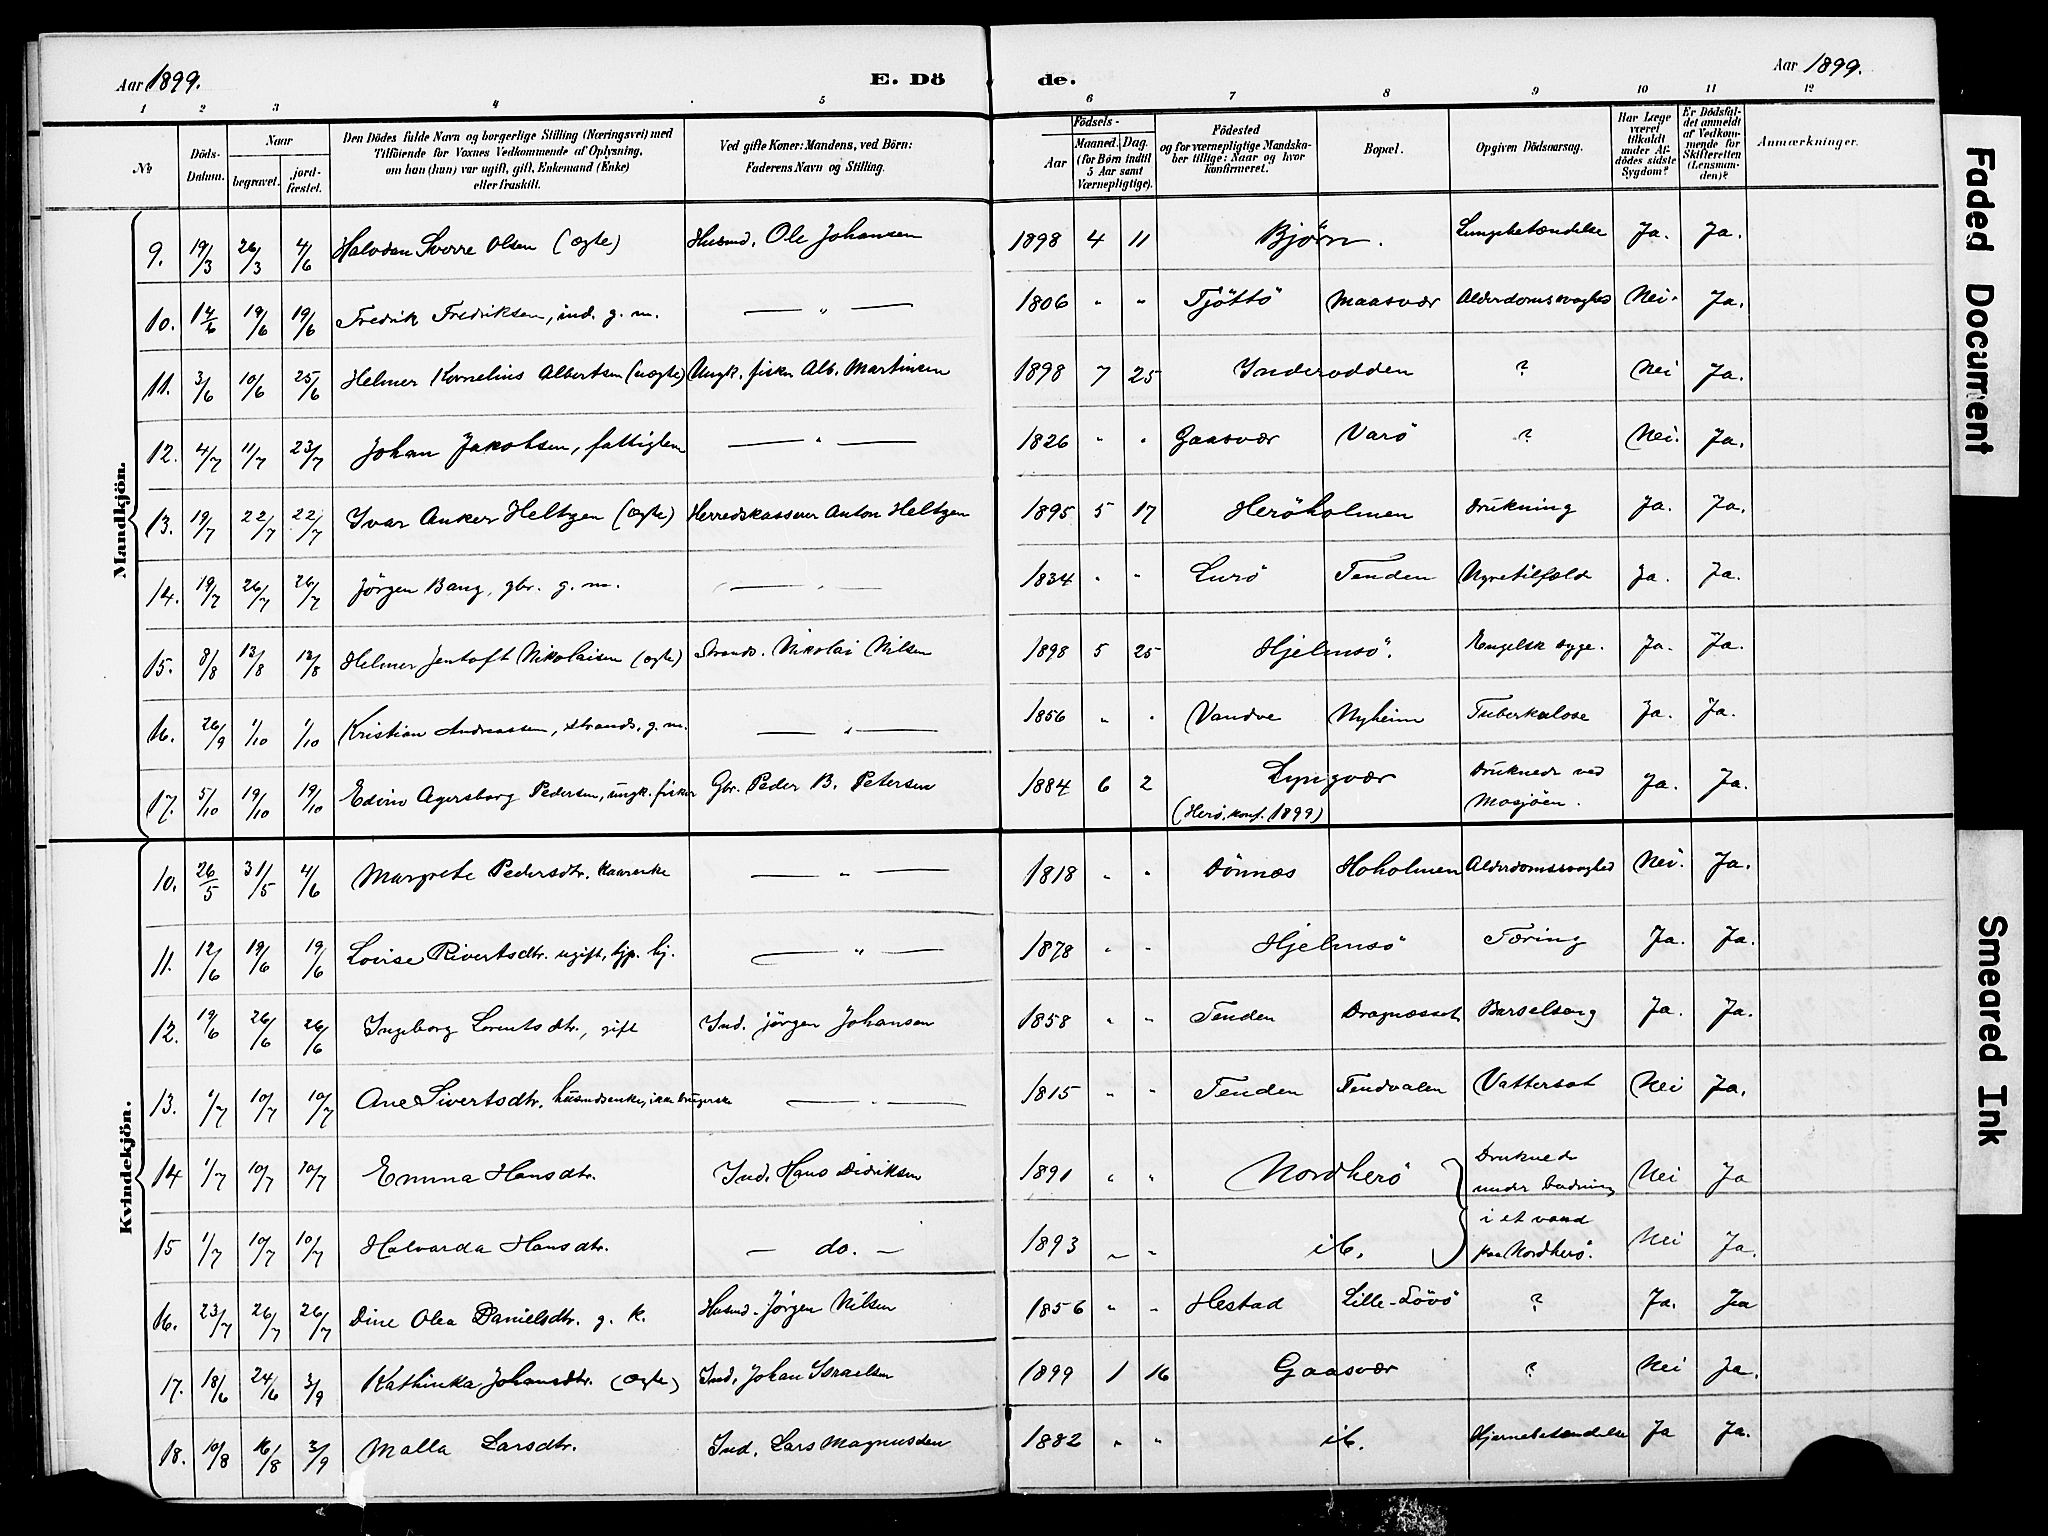 Aar 1899.
E. Dö
de.
Aar 1899.
1 2 3 4 5 6 7 8 9 10 11 12
No
Döds-Datum.
Naar
begravet.
jord-fæstet.
Den Dödes fulde Navn og borgerlige Stilling (Næringsvei) med
Tilföiende for Voxnes Vedkommende af Oplysning,
om han (hun) var ugift, gift, Enkemand (Enke)
eller fraskilt.
Ved gifte Koner: Mandens, ved Börn:
Faderens Navn og Stilling.
Födsels-
Aar
Maaned. Dag.
(for Börn indtil
5 Aar samt
Værnepligtige).
Födested
og for værnepligtige Mandska-
ber tillige: Naar og hvor
konfirmeret.
Bopæl.
Opgiven Dödsaarsag.
Har Læge
været
tilkaldt
under Af-
dödes sidste
Sygdom?
Er Dödsfal-
det anmeldt
af Vedkom-
mende for
Skifteretten
(Lensman-
den)?
Anmærkninger.
Mandkjön.
9. 19/3 26/3 4/6 Halvdan Sverre Olsen (ægte) Husmd. Ole Johansen 1898 4 11 Bjørn. Lungebetændelse Ja. Ja.
10. 14/6 19/6 19/6 Fredrik Fredriksen, ind. g. m. — " — 1806 " " Tjöttö Maasvær Alderdomssvaghed Nei. Ja.
11. 3/6 10/6 25/6 Helmer Kornelius Albertsen (uægte) Ungk. fisker Alb. Martinsen 1898 7 25 Inderodden ? Nei Ja.
12. 4/7 11/7 23/7 Johan Jakobsen, fattiglem — " — 1826 " " Gaasvær Varö ? Nei. Ja.
13. 19/7 22/7 22/7 Ivar Anker Heltzen (ægte) Herredskasserer Anton Heltzen 1895 5 17 Heröholmen Drukning Ja. Ja.
14. 19/7 26/7 26/7 Jörgen Bang, gbr. g. m. — " — 1834 " " Lurö Tenden Nyretilfælde Ja. Ja.
15. 8/8 13/8 13/8 Helmer Jentoft Nikolaisen (ægte) Strands. Nikolai Nilsen 1898 5 25 Hjelmsö. Engelsk syge. Ja. Ja.
16. 26/9 1/10 1/10 Kristian Andreassen, strands. g. m. — " — 1856 " " Vandve Nyheim Tuberkulose Ja. Ja.
17. 5/10 19/10 19/10 Edvin Agersborg Pedersen, ungk. fisker Gbr. Peder B. Petersen 1884 6 2 Lyngvær Druknede ved Ja. Ja.
(Herö, konf. 1899) Mosjöen.
Kvindekjön.
10. 26/5 31/5 4/6 Margrete Pedersdtr. kaarenke — " — 1818 " " Dönnæs Hoholmen Alderdomssvaghed Nei. Ja.
11. 12/6 19/6 19/6 Lovise Sivertsdtr. ugift, hjp. hj. — " — 1878 " " Hjelmsö Tæring Ja. Ja.
12. 19/6 26/6 26/6 Ingeborg Lorentsdtr., gift Ind. Jörgen Johansen 1858 " " Tenden Dragnæsset Barselseng Ja. Ja.
13. 1/7 10/7 10/7 Ane Sivertsdtr. husmdsenke, ikke brugerske — " — 1815 " " Tenden Tendvalen Vattersot Nei Ja.
14 1/7 10/7 10/7 Emma Hansdtr. Ind. Hans Didriksen 1891 " " Nordherö Druknede under badning Nei Ja
15 1/7 10/7 10/7 Halvarda Hansdtr. — do. — 1893 " " ib. i et vand paa Nordherö. Nei Ja.
16. 23/7 26/7 26/7 Dine Olea Danielsdtr. g. k. Husmd. Jörgen Nilsen 1856 " " Hestad Lille-Sövö ? Ja. Ja
17. 18/6 24/6 3/9 Kathinka Johansdtr. (ægte) Ind. Johan Israelsen 1899 1 16 Gaasvær ? Nei Ja.
18. 10/8 16/8 3/9 Malla Larsdtr. Ind. Lars Magnusden 1882 " " ib. Hjernebetændelse Ja Ja.
Faded Document
Smeared Ink